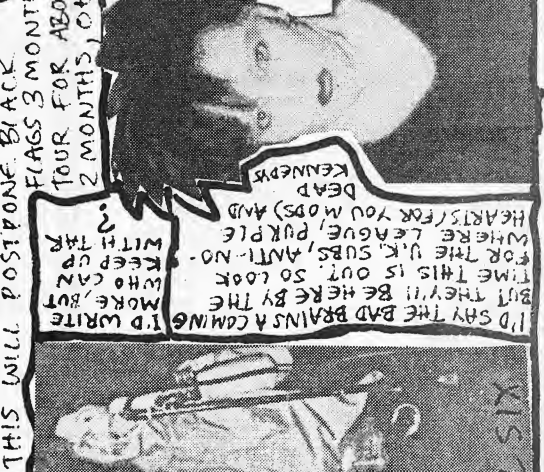 THIS WILL POSTPONE BLACK
FLAGS 3 MONTH
TOUR FOR ABO
2 MONTHS, OH
I'D SAY THE BAD BRAINS A COMING
BUT THEY'll BE HERE BY THE
TIME THIS IS OUT. SO LOOK
FOR THE U.K. SUBS, ANTI-NO-
WHERE LEAGUE, PURPLE
HEARTS (FOR YOU MODS) AND
DEAD
KENNEDYS
I'D WRITE
MORE, BUT
WHO CAN
KEEP UP
WITH TAR
?
SIX